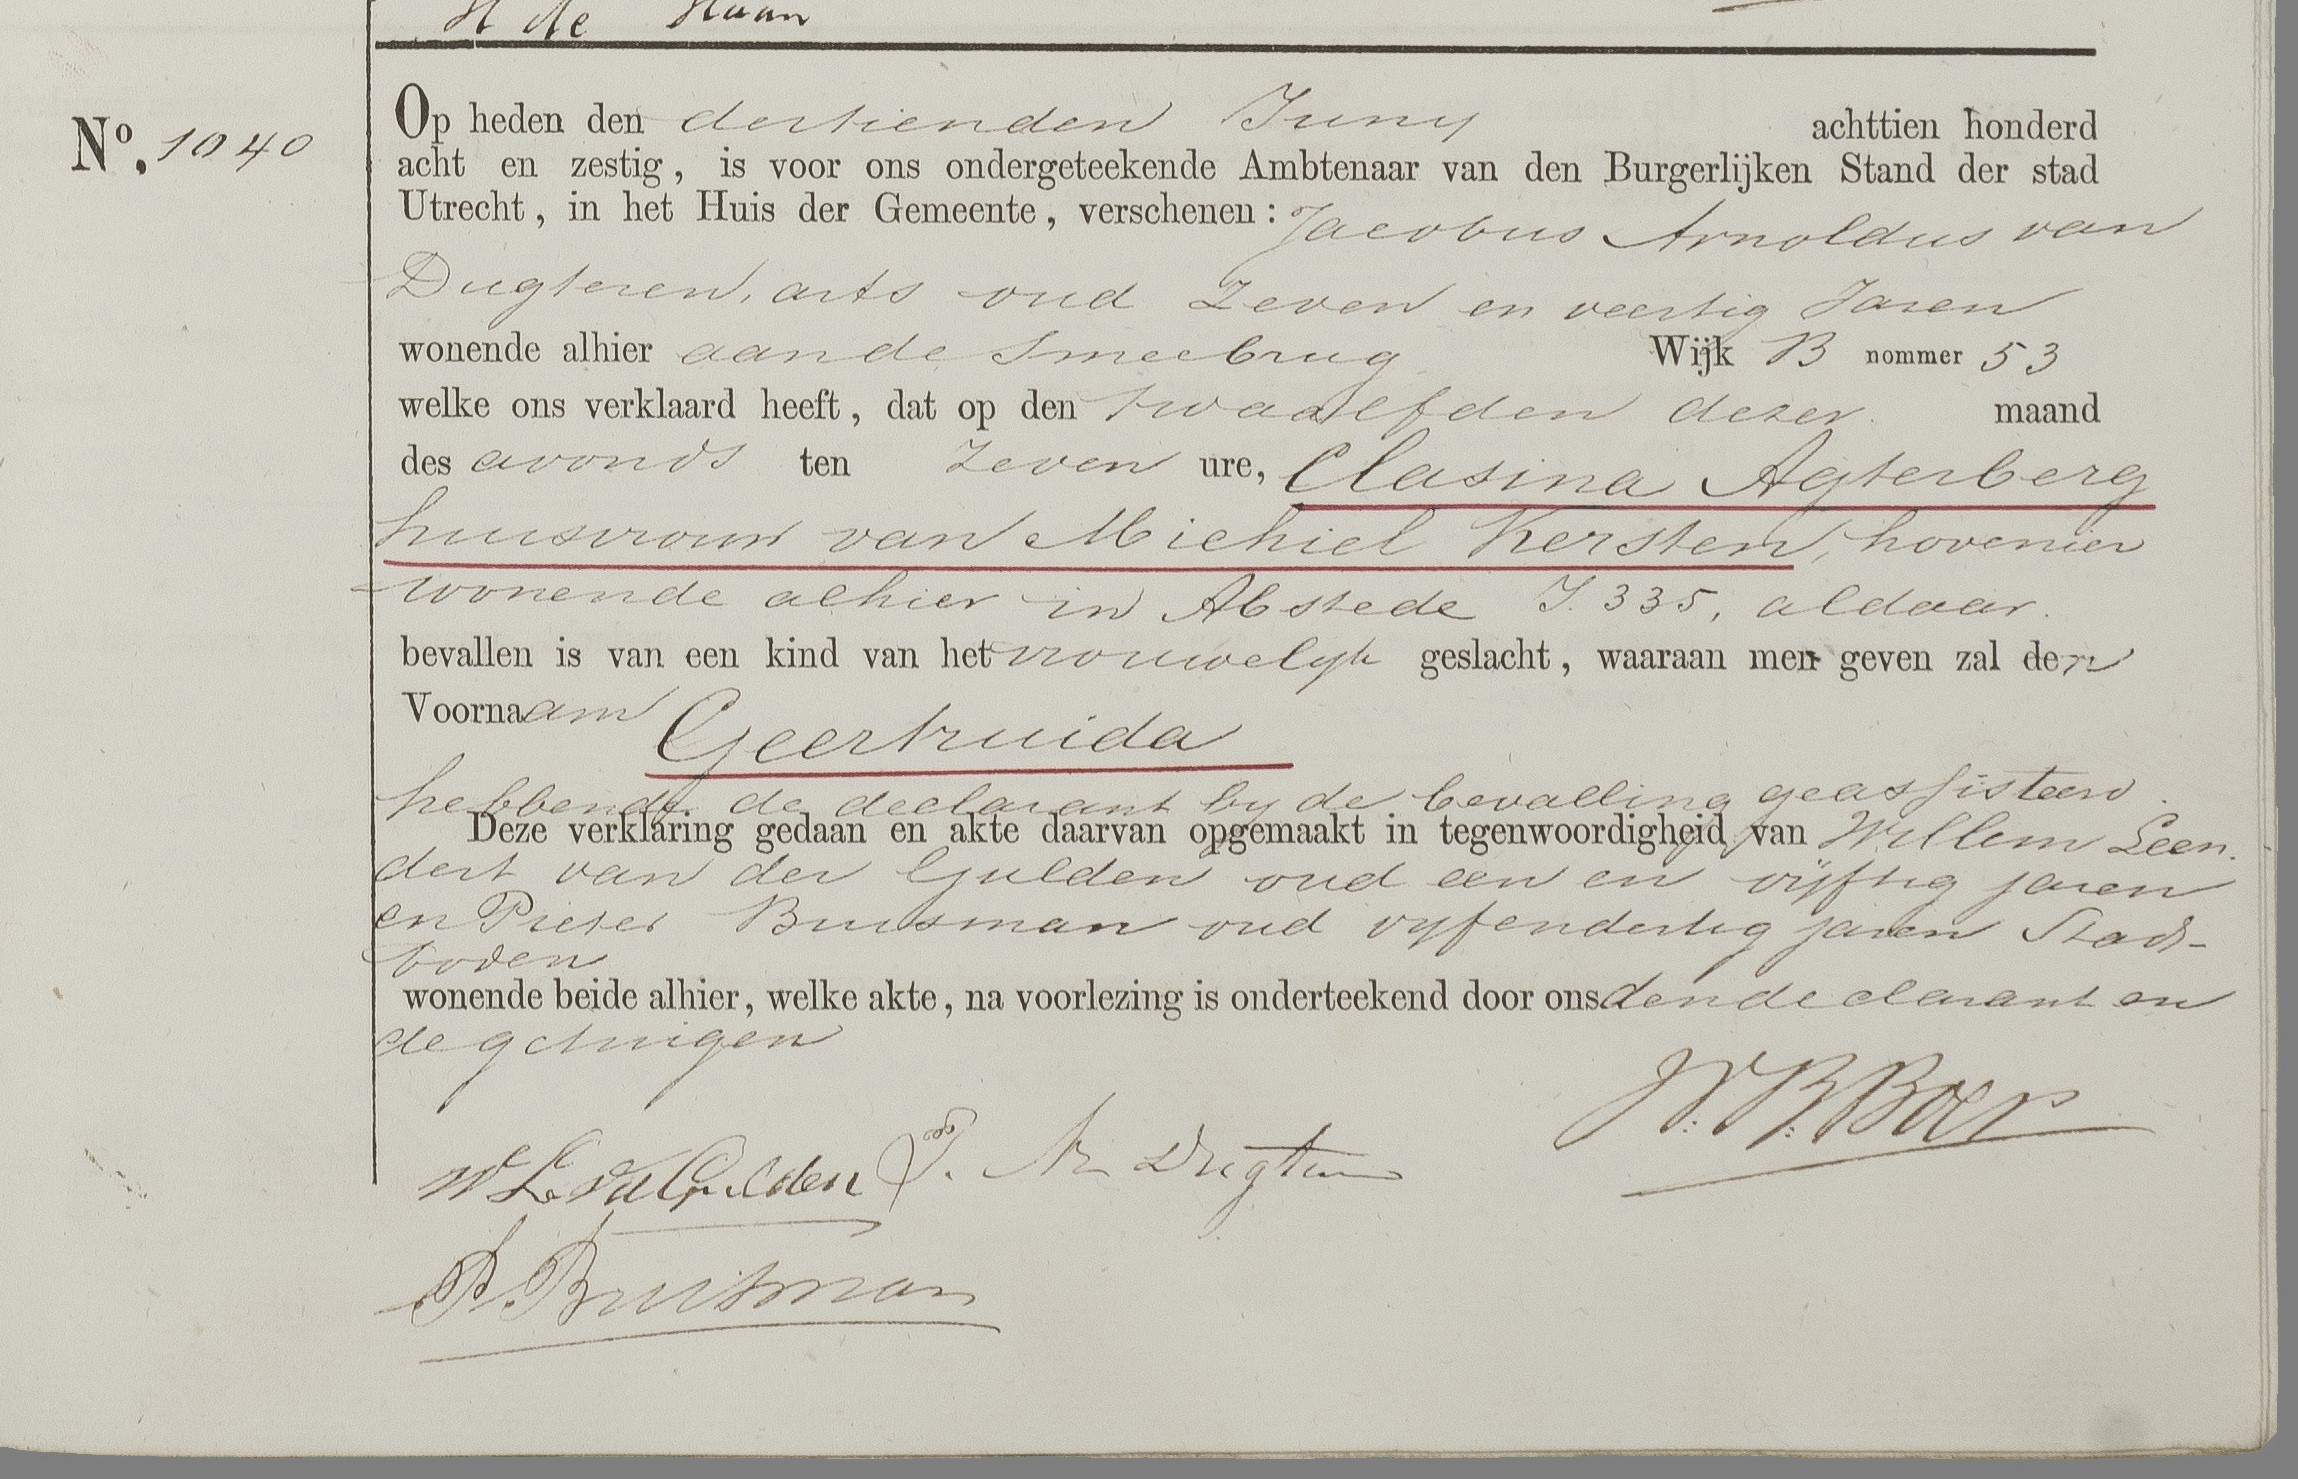 H de Haan
Nº. 1040
Op heden den dertienden Juny achttien honderd
acht en zestig, is voor ons ondergeteekende Ambtenaar van den Burgerlijken Stand der stad
Utrecht, in het Huis der Gemeente, verschenen: Jacobus Arnoldus van
Dugteren, arts oud Zeven en veertig Jaren
wonende alhier aan de Smeebrug Wijk B nommer 53
welke ons verklaard heeft, dat op den twaalfden dezer maand
des avonds ten Zeven ure, Clasina Agterberg
huisvrouw van Michiel Kersten, hovenier
wonende alhier in Abstede I. 335, aldaar.
bevallen is van een kind van het vrouwelyk geslacht, waaraan men geven zal den
Voornaam Geertruida
hebbende de declarant by de bevalling geassisteerd.
Deze verklaring gedaan en akte daarvan opgemaakt in tegenwoordigheid van Willem Leen.
dert van der Gulden oud een en vijftig jaren
en Pieter Buisman oud vyfendertig jaren Stads-
boden
wonende beide alhier, welke akte, na voorlezing is onderteekend door ons den declarant en
de getuigen
W. B. Boer
W L vd Gulden J. Ar v Dugteren
P Buisman